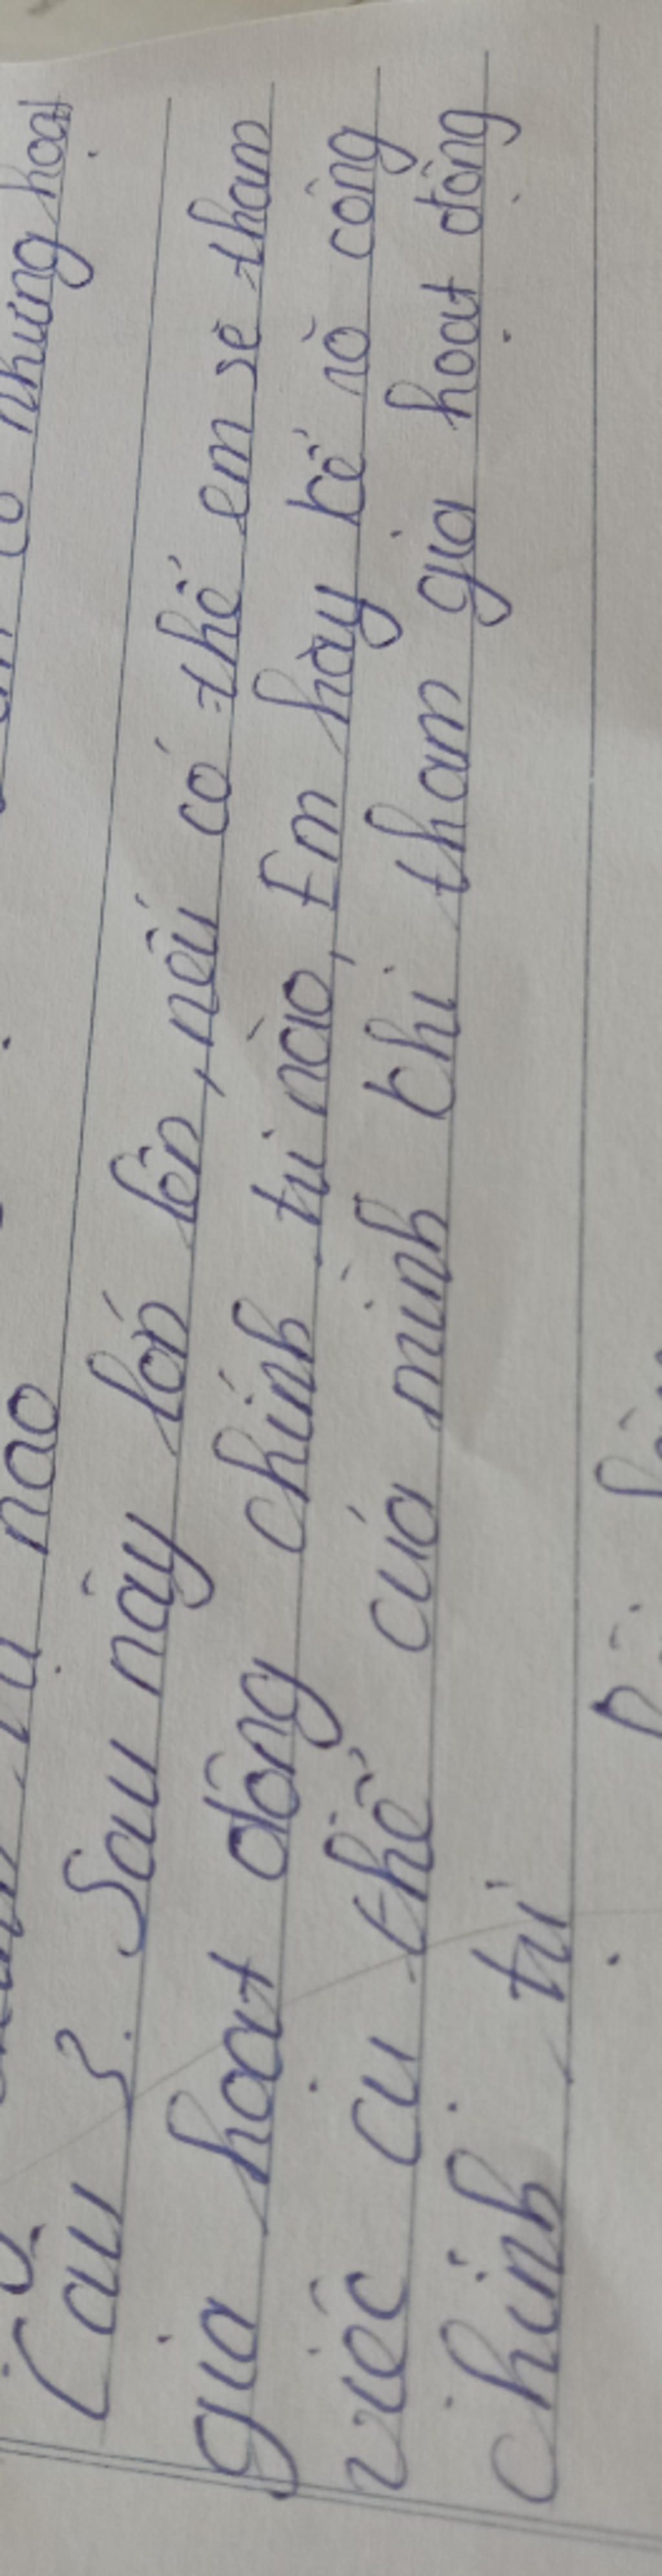 những hoạt
nào
Câu 3. Sau này lớn lên, nếu có thể em sẽ tham
gia hoạt động chính trị nào, Em hãy kể rõ công
việc cụ thể của mình khi tham gia hoạt động
chính trị